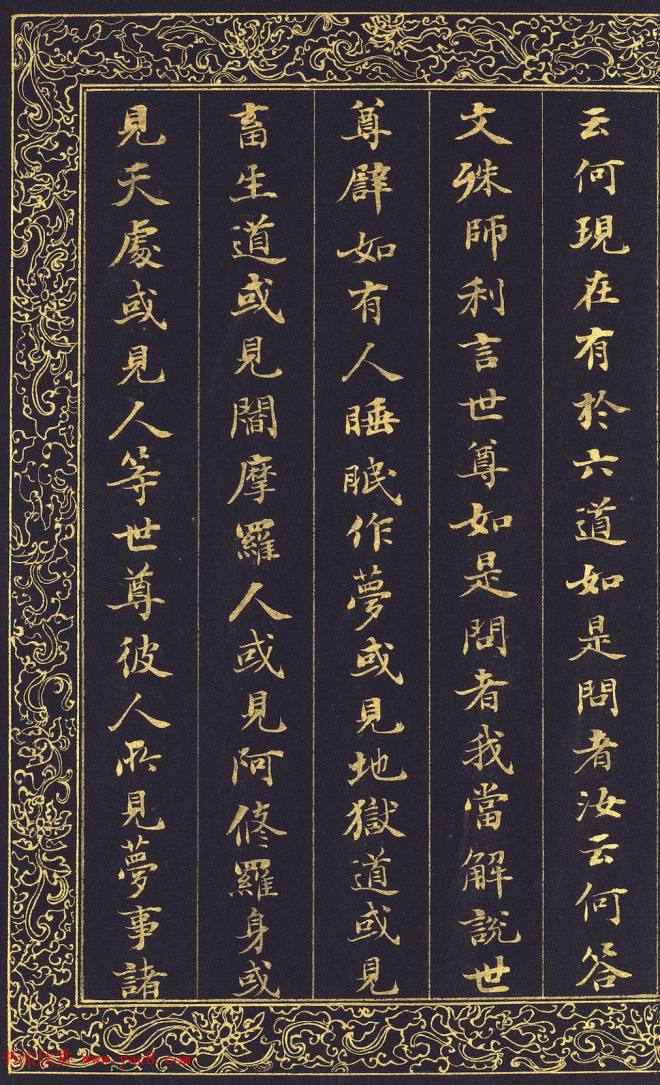 云何現在有於六道如是問者汝云何答
文殊師利言世尊如是問者我當解說世
尊譬如有人睡眠作夢或見地獄道或見
畜生道或見閻摩羅人或見阿修羅身或
見天處或見人等世尊彼人所見夢事諸